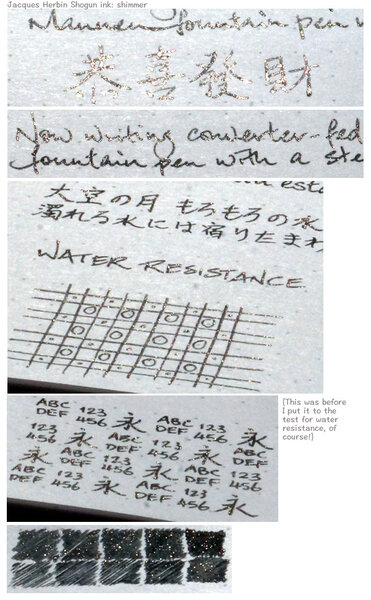 Jacques Herbin Shogun ink: shimmer
fountain pen
恭喜發財
Now writing converter-fed
fountain pen with a ste
大空の月 もろもろの水
濁れる水には宿りたまわ
WATER RESISTANCE
[This was before
I put it to the
test for water
resistance, of
course!]
ABC 123 永 ABC 123 永
DEF 456 DEF 456
123 永 ABC 123 永 ABC
456 DEF 456 DEF
ABC 123 永 ABC 123 永
DEF 456 DEF 456
123 永 ABC 123 永 ABC
456 DEF 456 DEF
ABC 123 永 ABC 123 永
DEF 456 DEF 456